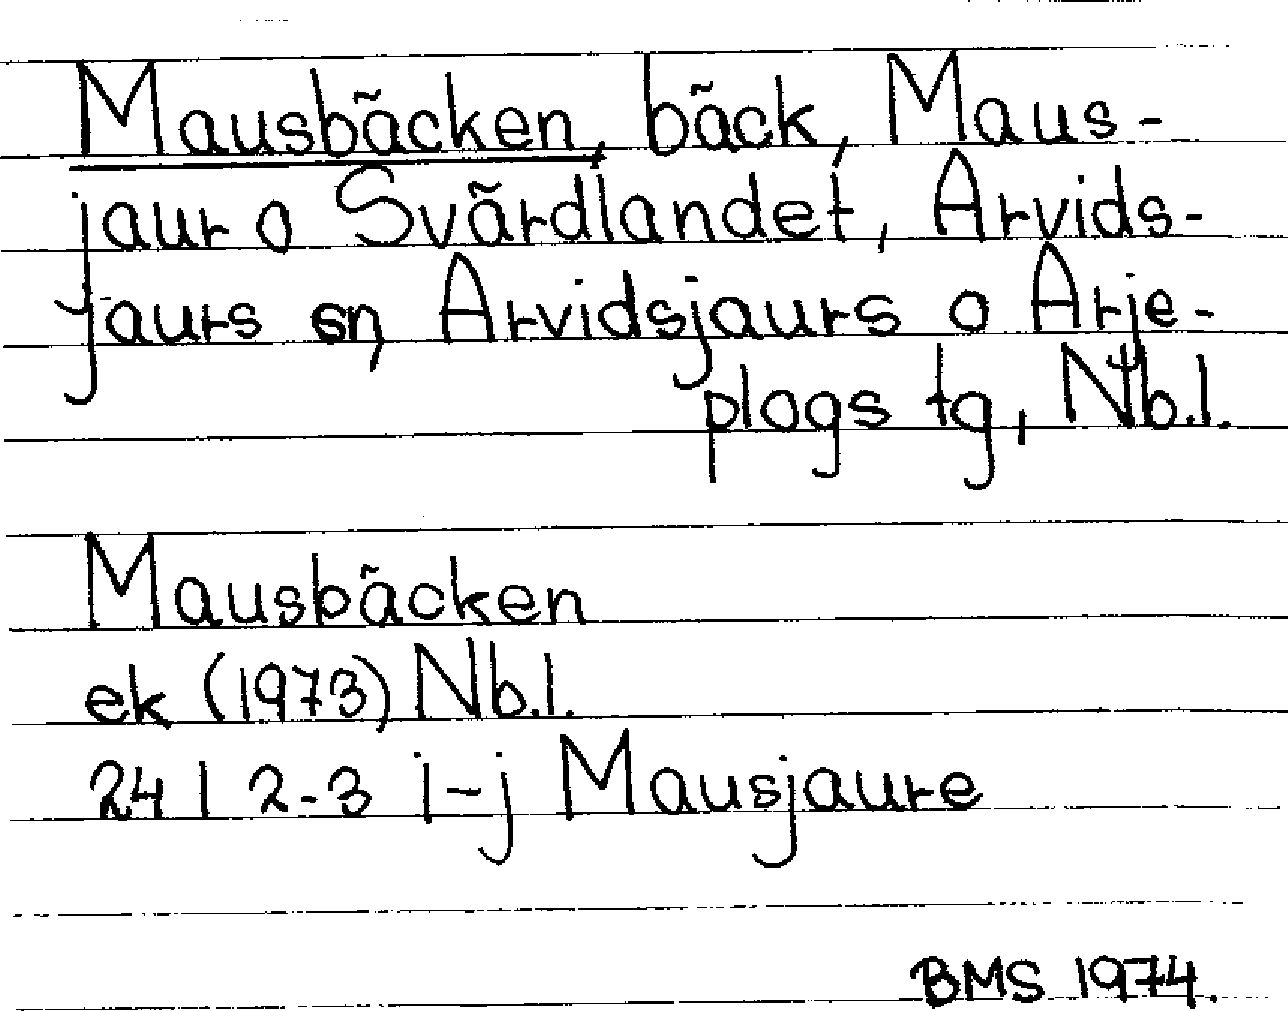 Mausbäcken, bäck, Maus-
jaur o Svärdlandet, Arvids-
jaurs sn, Arvidsjaurs o Arje-
plogs tg, Nb.l.
Mausbäcken
ek (1973) Nb.l.
24 I 2-3 i-j Mausjaure
BMS 1974.